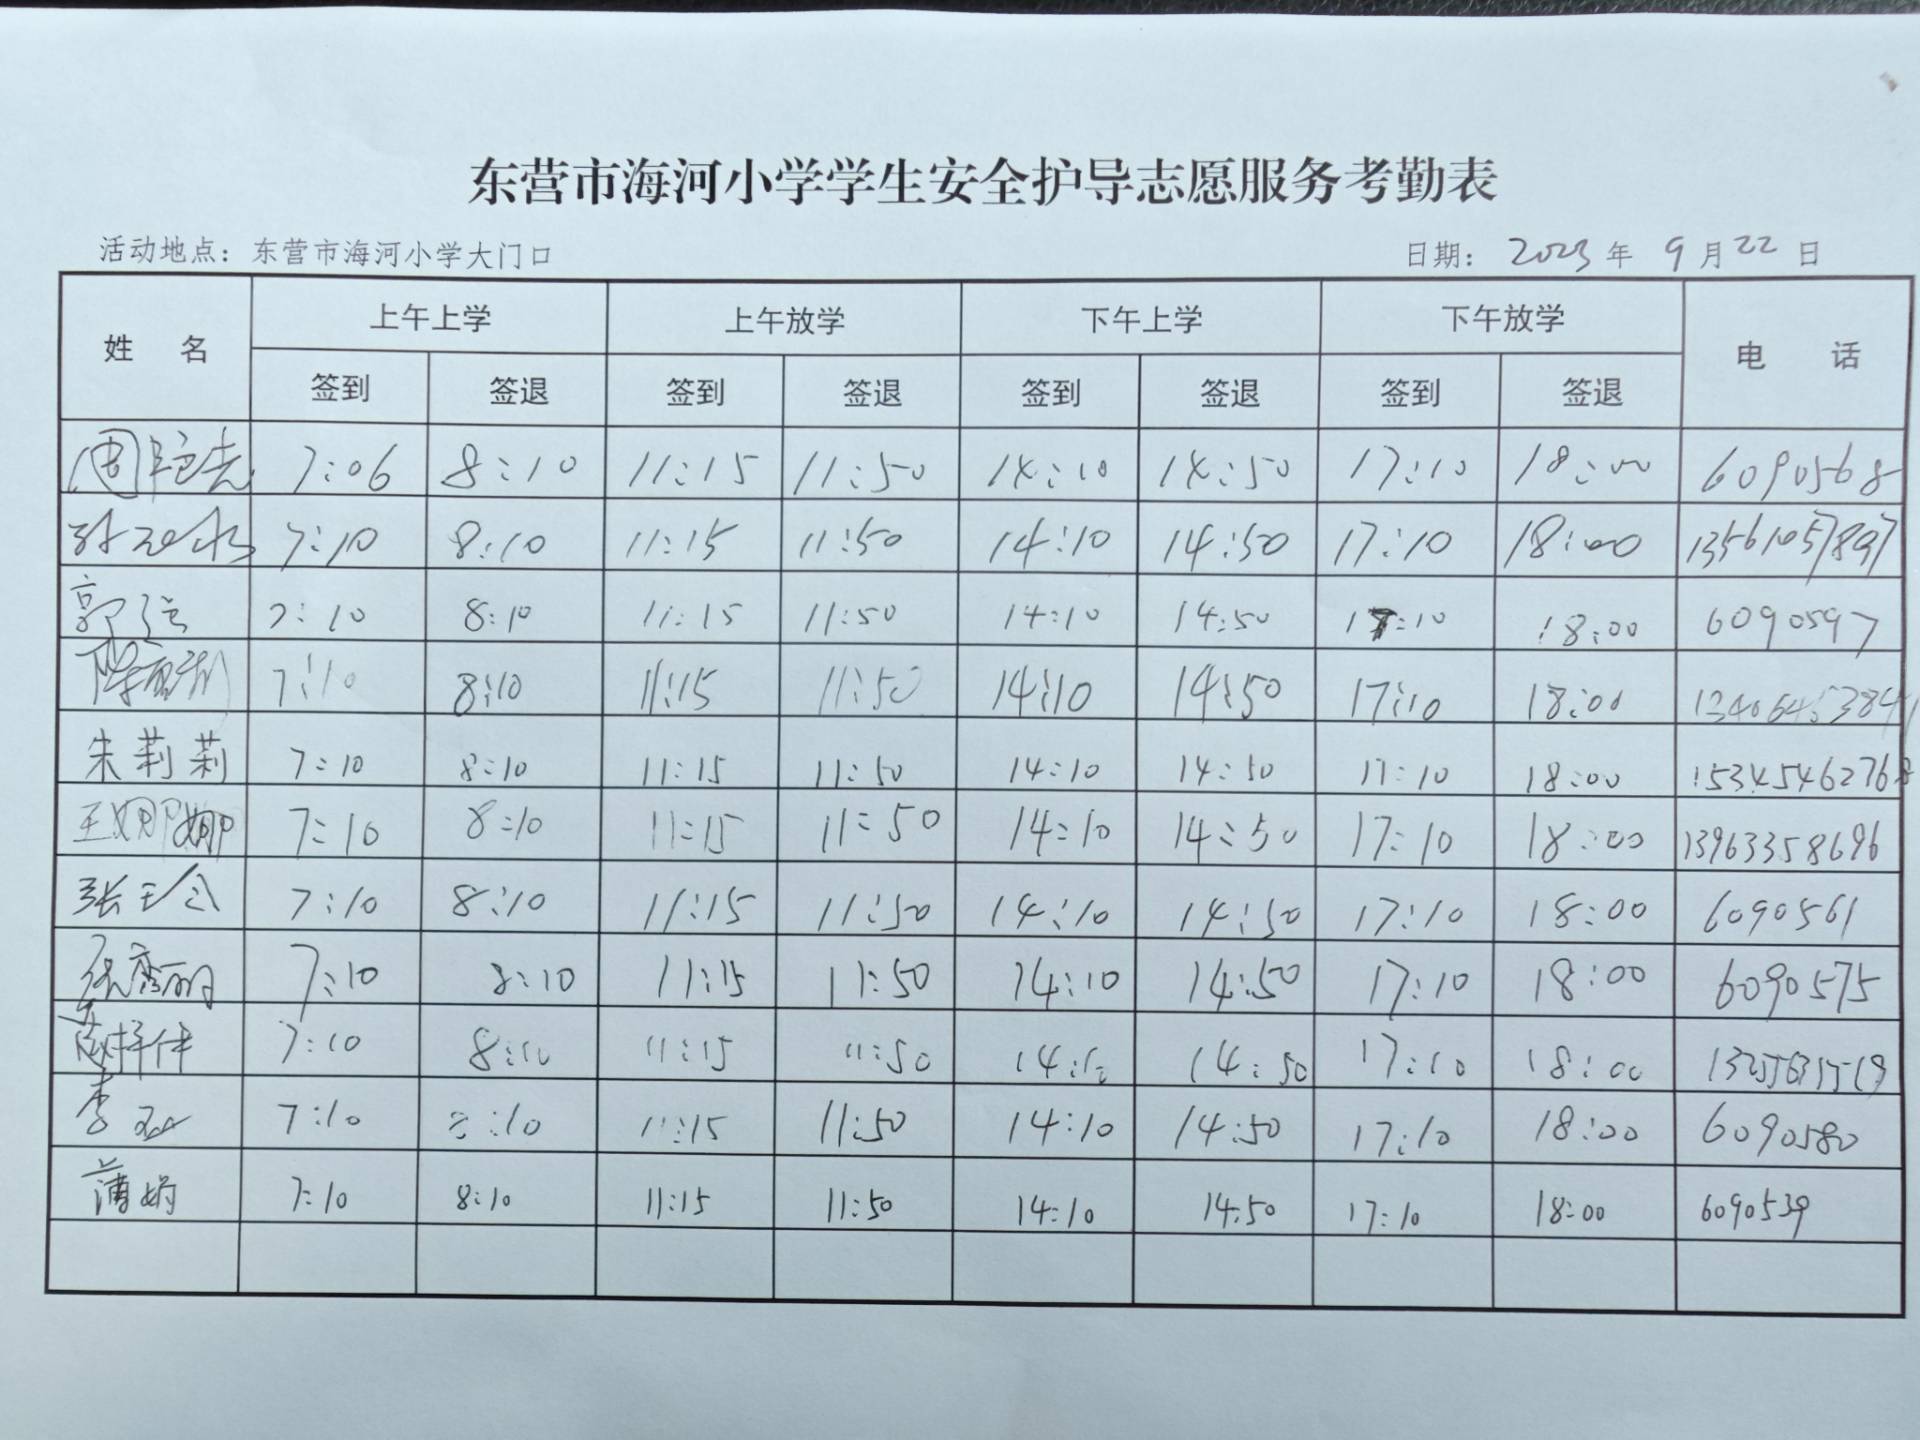 东营市海河小学学生安全护导志愿服务考勤表
活动地点：东营市海河小学大门口 日期：2023年9月22日
姓 名 上午上学 上午放学 下午上学 下午放学 电 话
签到 签退 签到 签退 签到 签退 签到 签退
周 7:06 8:10 11:15 11:50 14:10 14:50 17:10 18:00 6090568
7:10 8:10 11:15 11:50 14:10 14:50 17:10 18:00 13561057897
郭强 7:10 8:10 11:15 11:50 14:10 14:50 17:10 18:00 6090597
7:10 8:10 11:15 11:50 14:10 14:50 17:10 18:00
朱莉莉 7:10 8:10 11:15 11:50 14:10 14:50 17:10 18:00 15345462768
王娜娜 7:10 8:10 11:15 11:50 14:10 14:50 17:10 18:00 13963358696
张 7:10 8:10 11:15 11:50 14:10 14:50 17:10 18:00 6090561
张秀丽 7:10 8:10 11:15 11:50 14:10 14:50 17:10 18:00 6090575
7:10 8:10 11:15 11:50 14:10 14:50 17:10 18:00
李 7:10 8:10 11:15 11:50 14:10 14:50 17:10 18:00 6090580
蒲娟 7:10 8:10 11:15 11:50 14:10 14:50 17:10 18:00 6090539